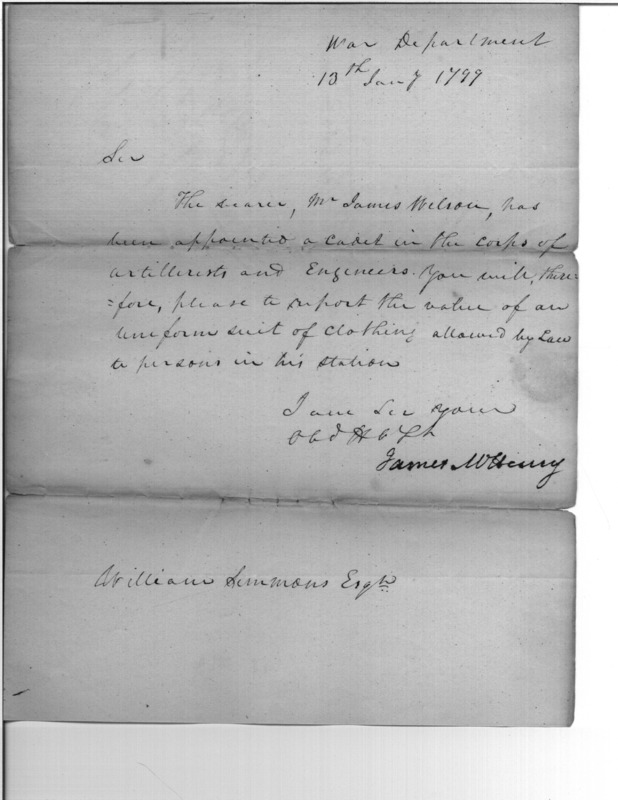 War Department
13th Jany 1799
Sir
The bearer, Mr James Wilson, has
been appointed a cadet in the corps of
artillerists and Engineers. You will, there=
=fore, please to report the value of an
uniform suit of clothing allowed by Law
to persons in his station
I am Sir your
Obd H b St
James McHenry
William Simmons Esqr